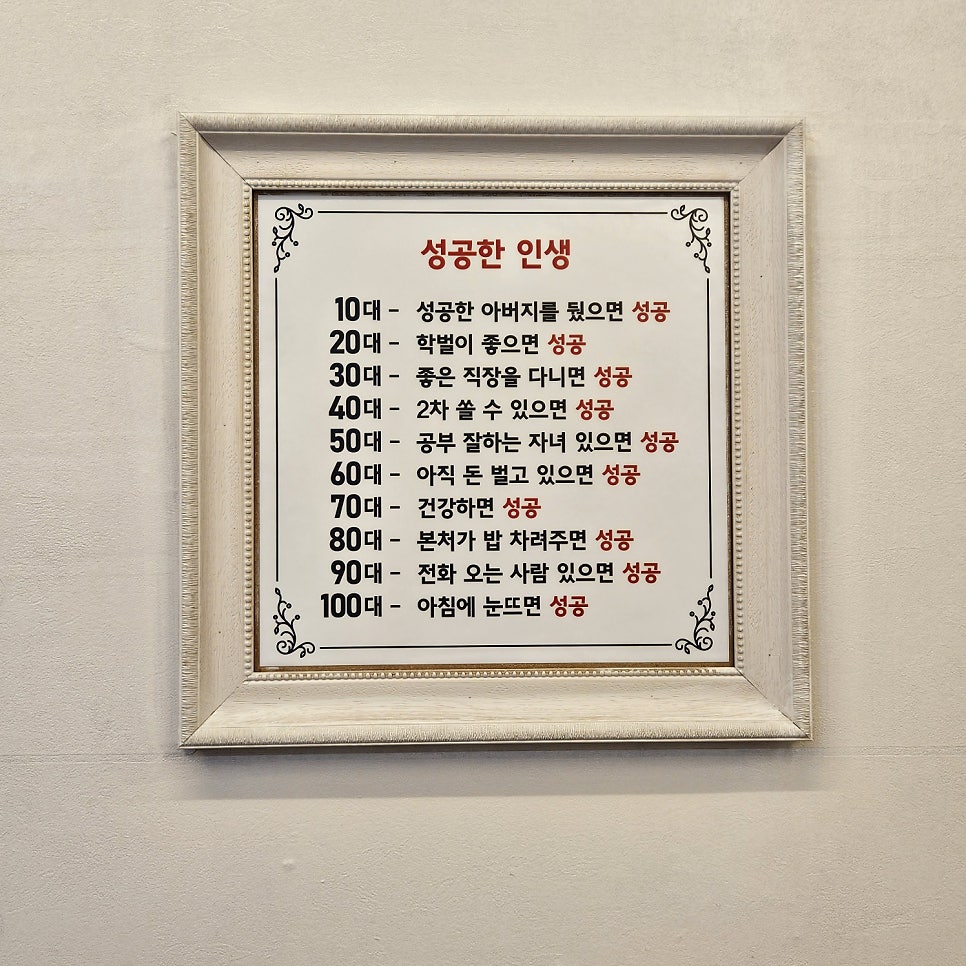 성공한 인생
10대 - 성공한 아버지를 뒀으면 성공
20대 - 학벌이 좋으면 성공
30대 - 좋은 직장을 다니면 성공
40대 - 2차 쏠 수 있으면 성공
50대 - 공부 잘하는 자녀 있으면 성공
60대 - 아직 돈 벌고 있으면 성공
70대 - 건강하면 성공
80대 - 본처가 밥 차려주면 성공
90대 - 전화 오는 사람 있으면 성공
100대 - 아침에 눈뜨면 성공